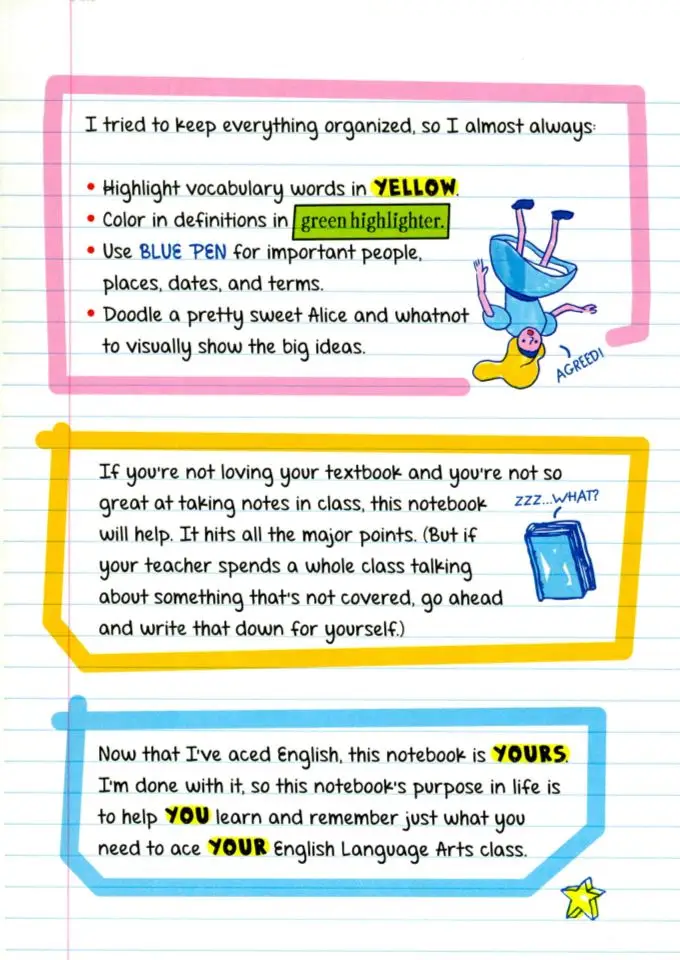 I tried to keep everything organized, so I almost always:
• Highlight vocabulary words in YELLOW.
• Color in definitions in green highlighter.
• Use BLUE PEN for important people,
places, dates, and terms.
• Doodle a pretty sweet Alice and whatnot
to visually show the big ideas.
AGREED!
If you're not loving your textbook and you're not so
great at taking notes in class, this notebook
will help. It hits all the major points. (But if
your teacher spends a whole class talking
about something that's not covered, go ahead
and write that down for yourself.)
ZZZ...WHAT?
Now that I've aced English, this notebook is YOURS.
I'm done with it, so this notebook's purpose in life is
to help YOU learn and remember just what you
need to ace YOUR English Language Arts class.